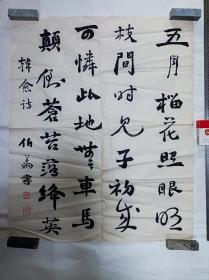 五月榴花照眼明
枝間时见子初成
可憐此地無車馬
顛倒蒼苔落绛英
韓愈诗
伯萬書